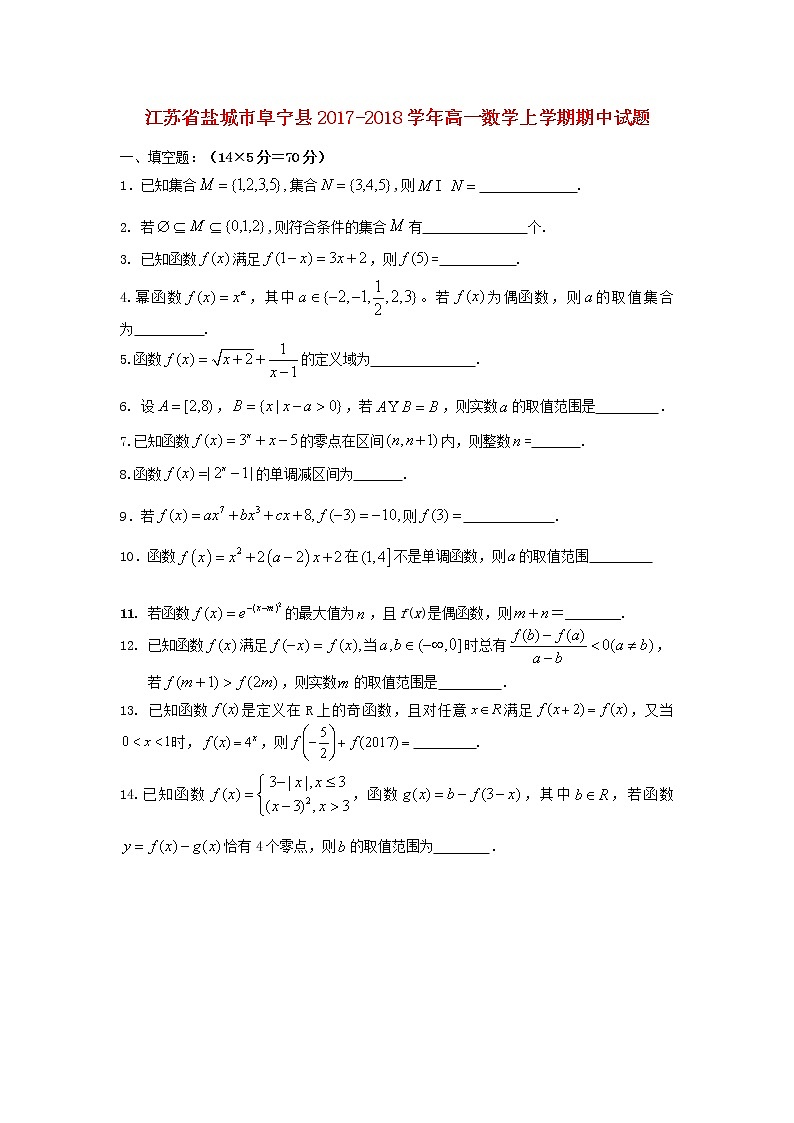 江苏省盐城市阜宁县2017-2018学年高一数学上学期期中试题
一、填空题:（14×5分＝70分）
1. 已知集合M = {1,2,3,5},集合N = {3,4,5},则M I N = ______________.
2. 若∅ ⊆ M ⊆ {0,1,2},则符合条件的集合M有_______________个.
3. 已知函数f(x)满足f(1−x) = 3x+2，则f(5)=___________.
4.幂函数f(x) = x^a，其中a∈{−2,−1,1/2,2,3}。若f(x)为偶函数，则a的取值集合
为__________.
5.函数f(x) = √(x+2) + 1/(x−1)的定义域为_______________.
6. 设A = [2,8)，B = {x | x−a > 0}，若A Y B = B，则实数a的取值范围是_________.
7.已知函数f(x) = 3^n + x − 5的零点在区间(n, n+1)内，则整数n=_______.
8.函数f(x) =| 2^n −1|的单调减区间为_______.
9．若f(x) = ax^7 + bx^3 + cx + 8, f(−3) = −10,则f(3) = _____________.
10．函数f(x) = x^2 + 2(a−2)x + 2在(1,4]不是单调函数，则a的取值范围_________
11. 若函数f(x) = e^(−(x−m)^2)的最大值为n，且f(x)是偶函数，则m+n＝________.
12. 已知函数f(x)满足f(−x) = f(x),当a,b∈(−∞,0]时总有(f(b)−f(a))/(a−b) < 0(a ≠ b)，
若f(m+1) > f(2m)，则实数m的取值范围是_________.
13. 已知函数f(x)是定义在R上的奇函数，且对任意x∈R满足f(x+2) = f(x)，又当
0 < x < 1时，f(x) = 4^x，则f(−5/2) + f(2017) = _________.
14.已知函数f(x) = {3−| x |, x ≤ 3 (x−3)^2, x > 3，函数g(x) = b − f(3−x)，其中b∈R，若函数
y = f(x) − g(x)恰有4个零点，则b的取值范围为________.